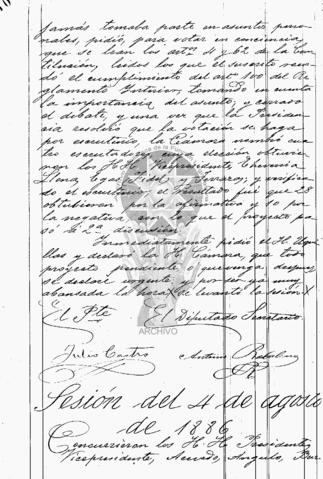 jamás tomaba parte en asuntos perso-
nales, pidió, para votar en conciencia,
que se lean los artos 4 y 62 de la Cons-
titución, leidos los que el suscrito recor-
dó el cumplimiento del arto 100 del Re-
glamento Interior, tomando en cuenta
la importancia del asunto; y cerrado
el debate, y una vez que la Presiden-
cia resolvió que la votación se haga
por escrutinio, la Cámara nombró cua-
tro escrutadores, cuya elección obtuvie-
ron los H. H. Vicepresidente, Echeverria
Llona, Egas y verifica-
do el escrutinio, el resultado fué que 28
obtubieron por la afirmativa y 10 por
la negativa, con lo que el proyecto pa-
só á 2ª discusión.
Inmediatamente pidió el H.
y declaró la H. Cámara, que todo
proyecto pendiente, ó que venga, después
se declare urgente; y por ser ya muy
abansada la hora se levantó la sesión.
El Pte El Diputado Secretario
ARCHIVO
Julio Castro Antonio Robalino
Sesión del 4 de agosto
de 1886
Concurrieron los H. H. Presidente,
Vicepresidente, Acevedo, Angulo,